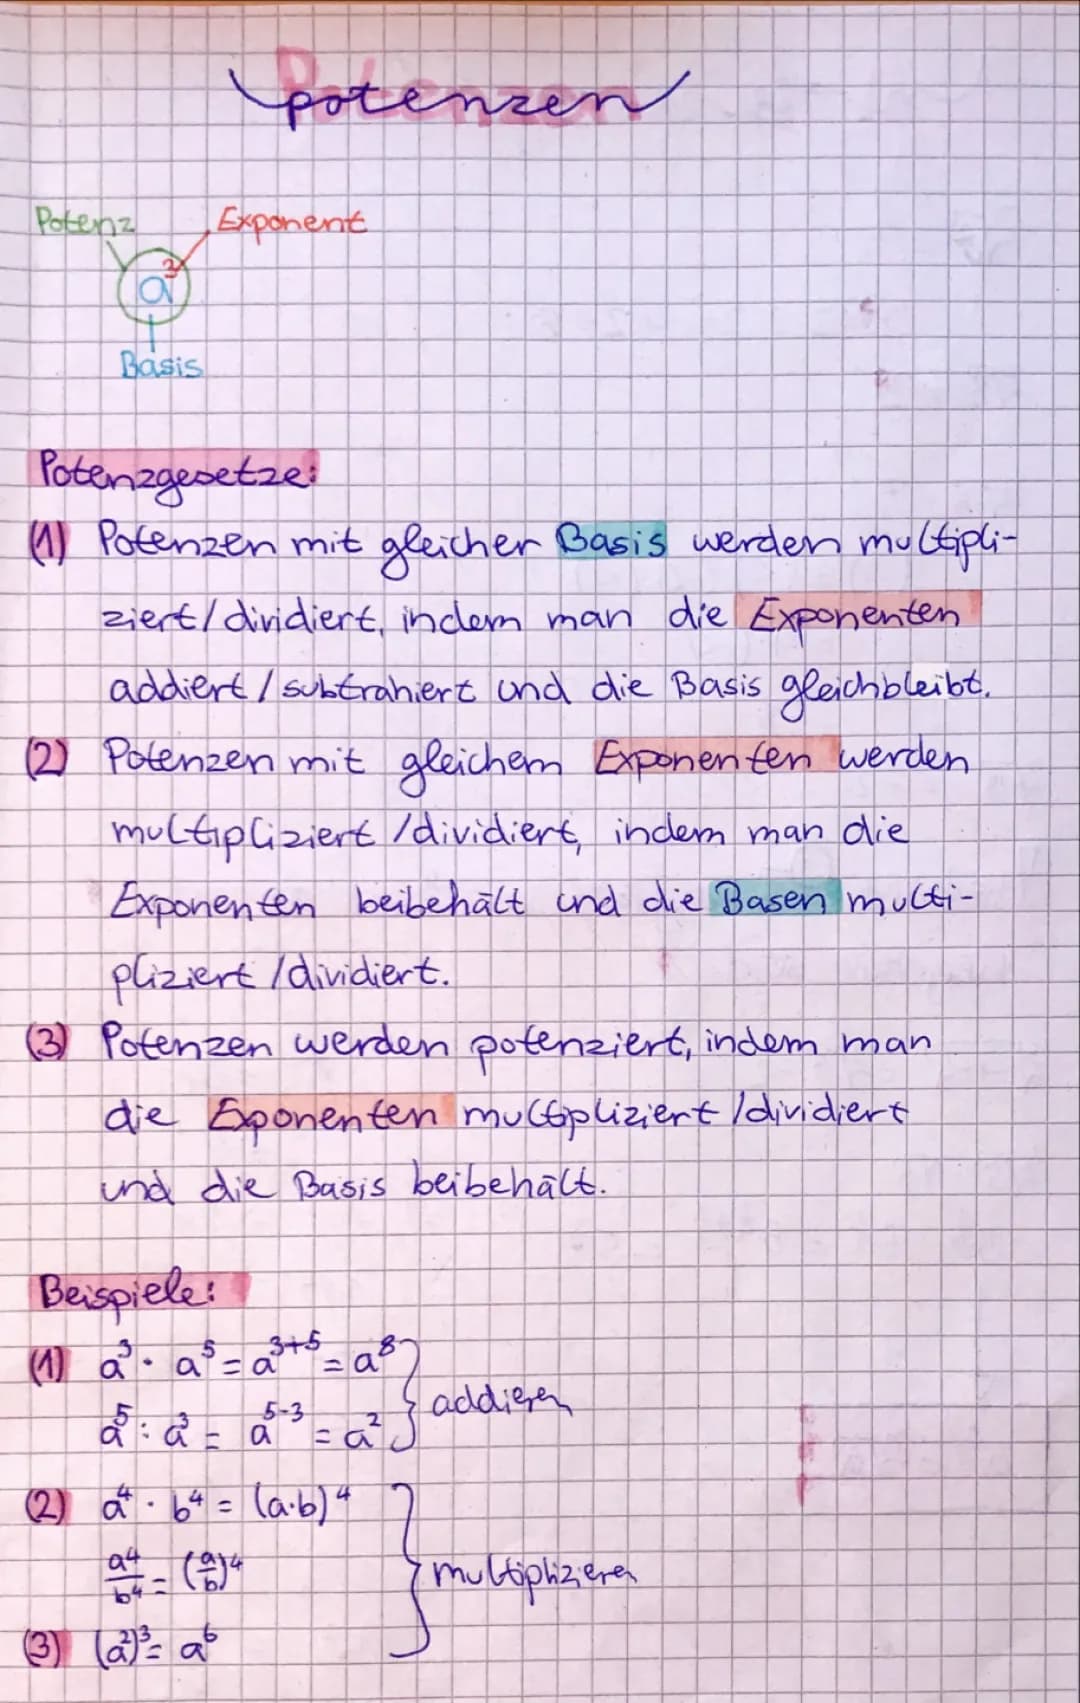 potenzen
Potenz Exponent
a³
Basis
Potenzgesetze:
(1) Potenzen mit gleicher Basis werden multipli-
ziert/dividiert, indem man die Exponenten
addiert/subtrahiert und die Basis gleichbleibt.
(2) Potenzen mit gleichem Exponenten werden
multipliziert/dividiert, indem man die
Exponenten beibehält und die Basen multi-
pliziert/dividiert.
(3) Potenzen werden potenziert, indem man
die Exponenten multipliziert/dividiert
und die Basis beibehält.
Beispiele:
(1) a³ · a⁵ = a³⁺⁵ = a⁸
addieren
a⁵ : a³ = a⁵⁻³ = a²
(2) a⁴ · b⁴ = (a·b)⁴
a⁴/b⁴ = (a/b)⁴ multiplizieren
(3) (a²)³ = a⁶